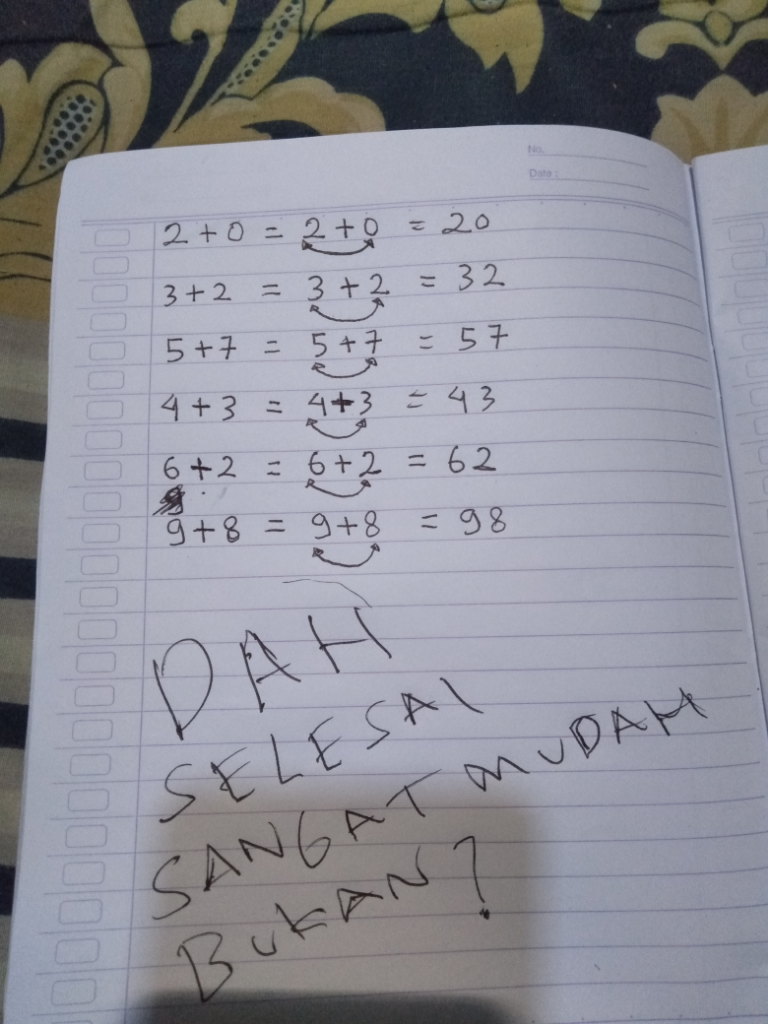 No.
Date :
2 + 0 = 2 + 0 = 20
3 + 2 = 3 + 2 = 32
5 + 7 = 5 + 7 = 57
4 + 3 = 4 + 3 = 43
6 + 2 = 6 + 2 = 62
9 + 8 = 9 + 8 = 98
DAH
SELESAI
SANGAT MUDAH
BUKAN?